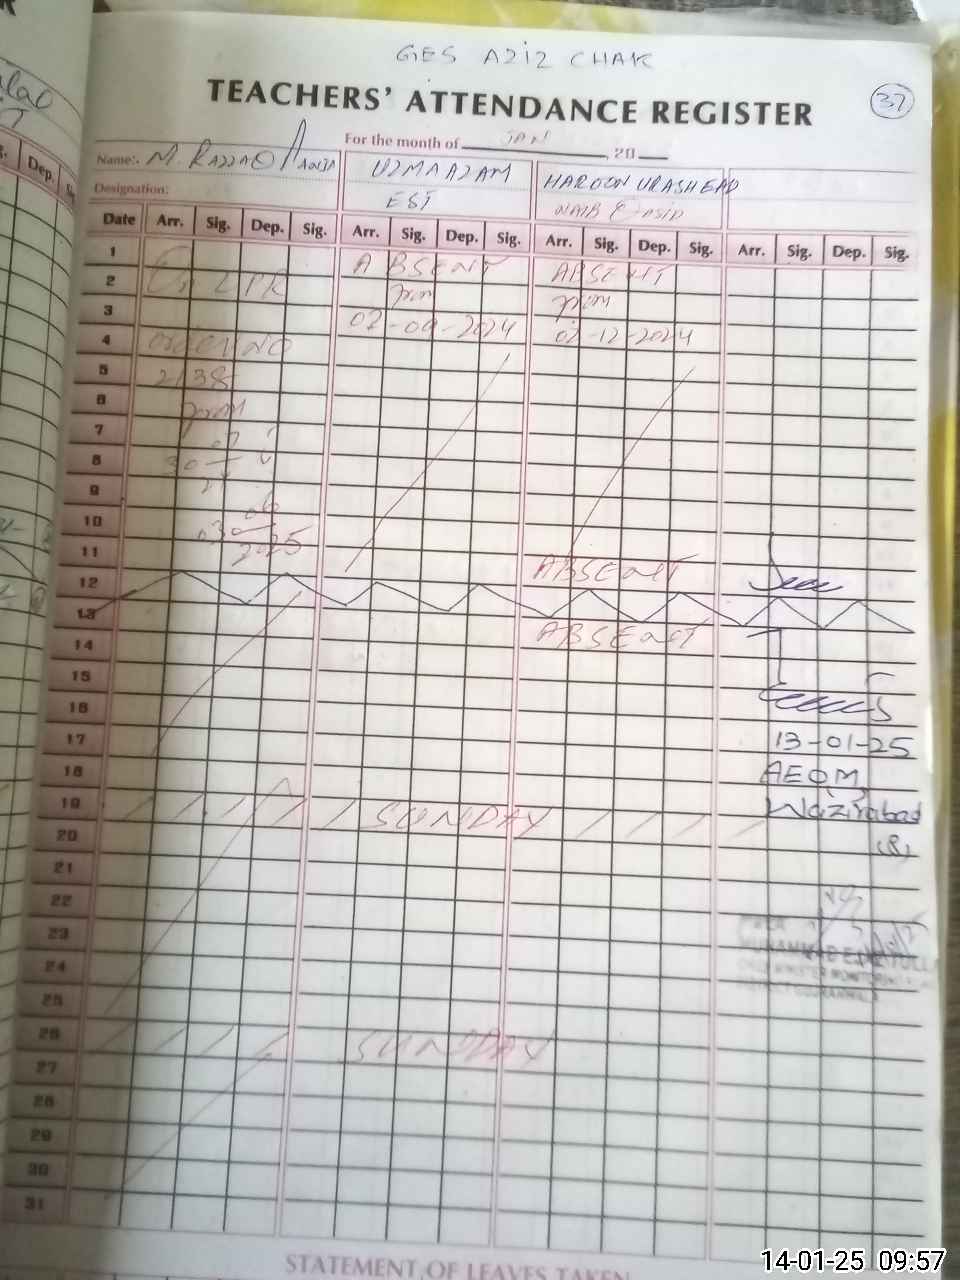 GES AZIZ CHAK
TEACHERS' ATTENDANCE REGISTER
37
For the month of JAN, 20
Name:- M. RAZZAQ
UZMA AZAM
HAROON URASHEED
Designation:
EST
NAIB QASID
Date Arr. Sig. Dep. Sig. Arr. Sig. Dep. Sig. Arr. Sig. Dep. Sig. Arr. Sig. Dep. Sig.
1
ABSENT
ABSENT
2
On LPR
from
from
3
02-09-2024
02-12-2024
4
order NO
5
2138
6
from
7
8
9
10
06
30
2025
11
ABSENT
12
13
ABSENT
14
15
16
17
13-01-25
18
AEOM,
19
SUNDAY
Wazirabad
20
21
22
23
24
25
26
SUNDAY
27
28
29
30
31
STATEMENT OF LEAVES TAKEN
Dep.
14-01-25 09:57